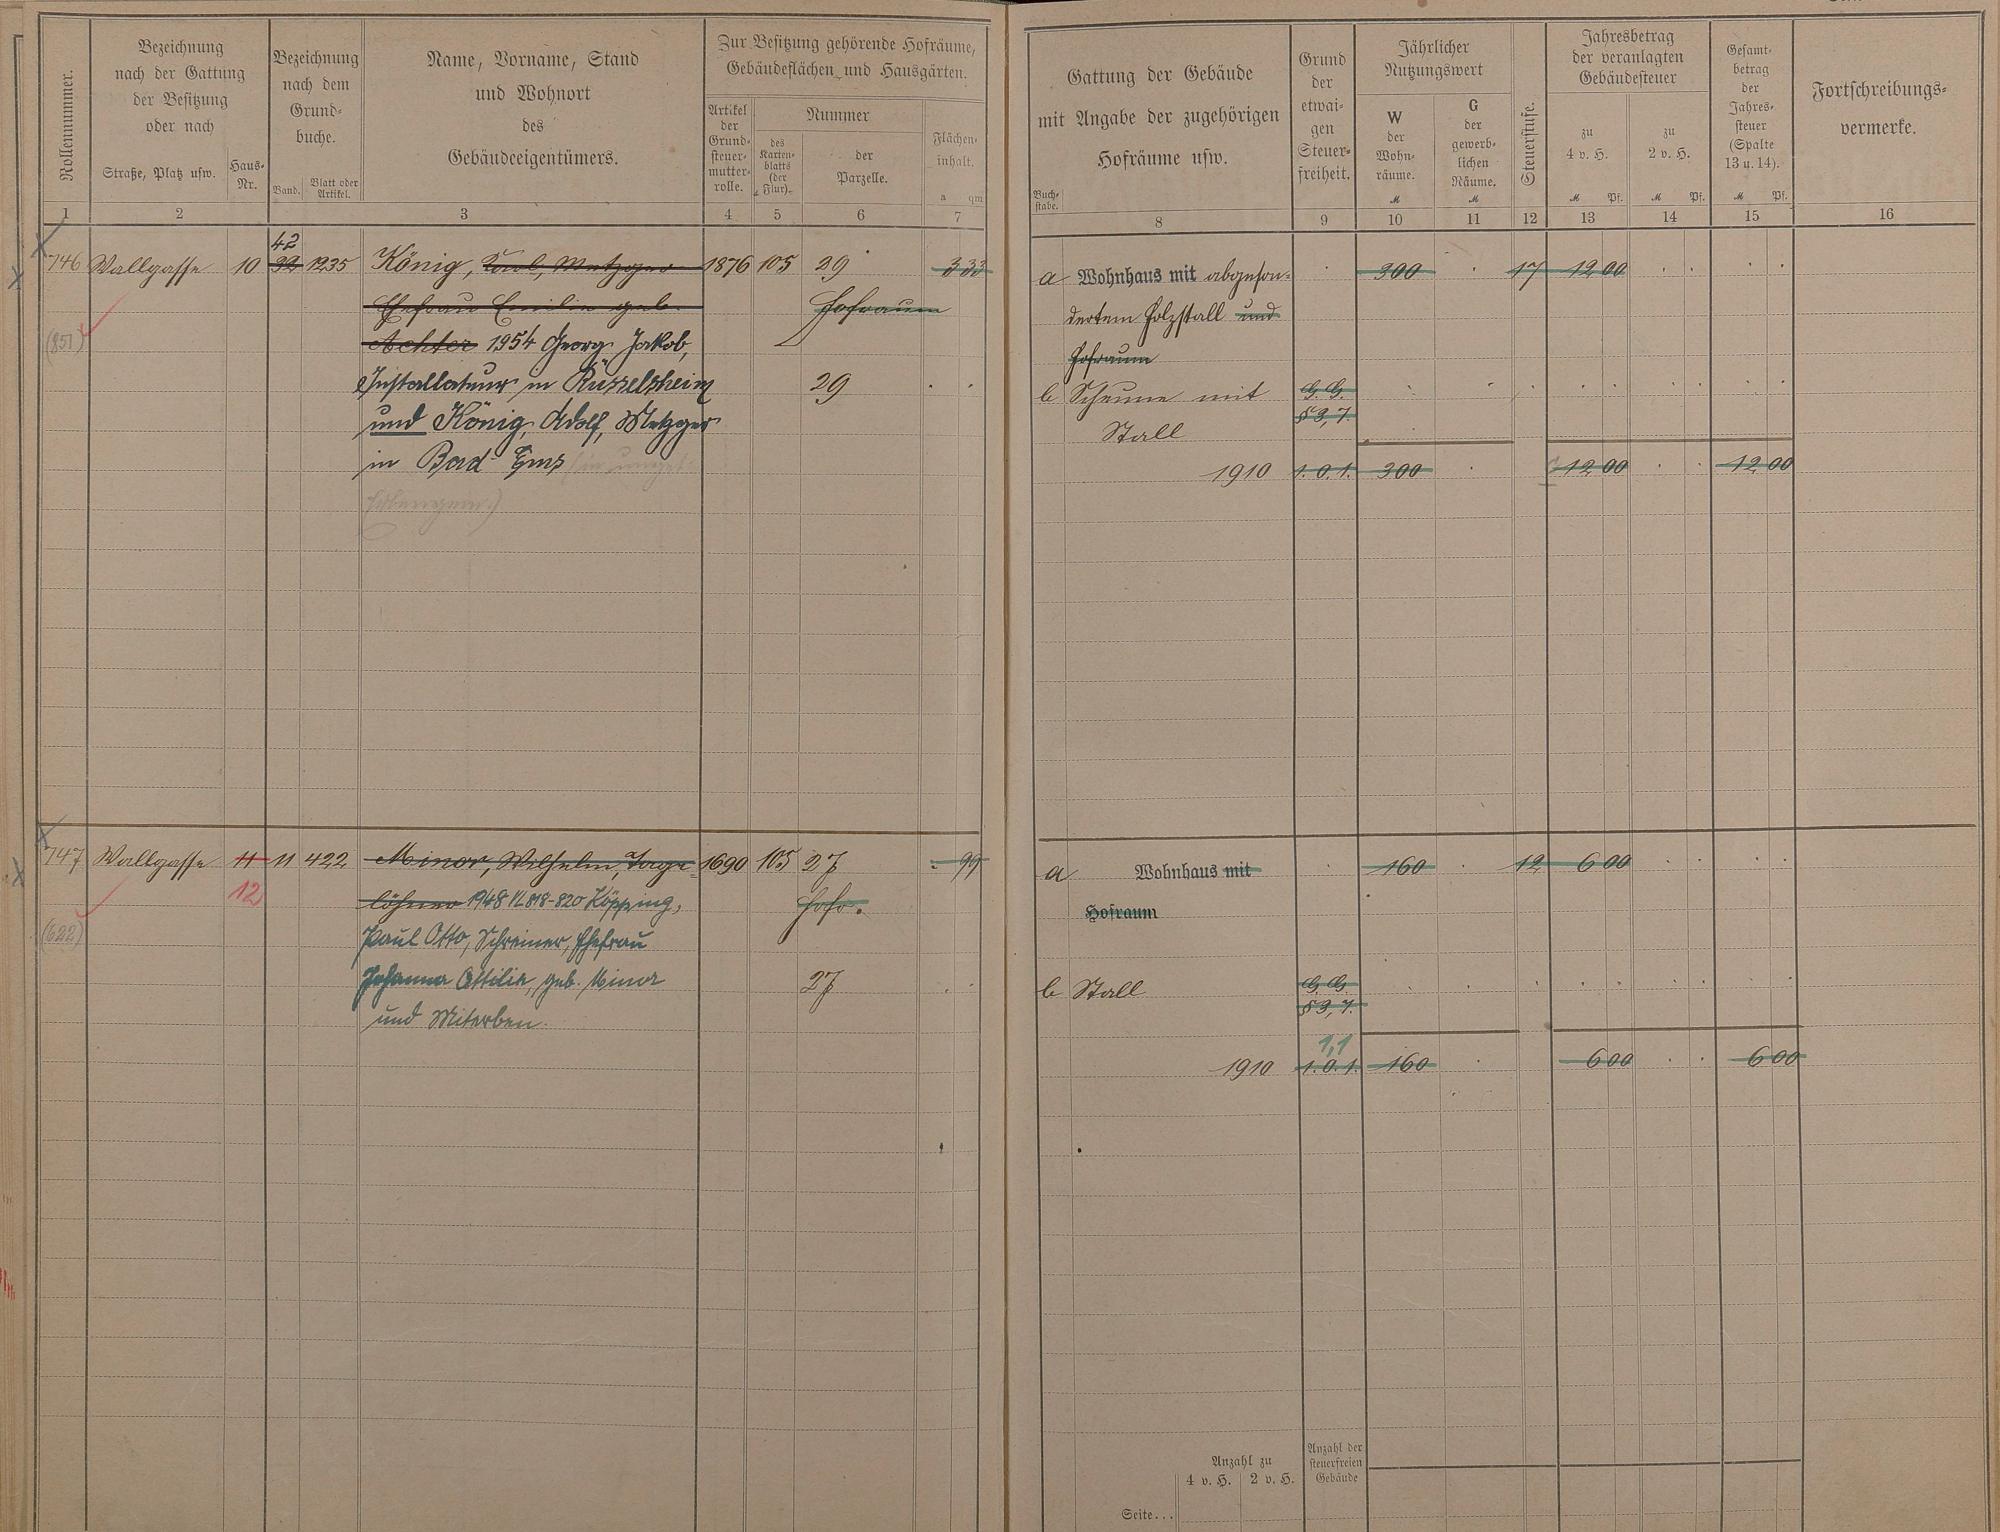 Rollennummer.
Bezeichnung
nach der Gattung
der Besitzung
oder nach
Straße, Platz usw.
Haus-
Nr.
Bezeichnung
nach dem
Grund-
buche.
Band.
Blatt oder
Artikel.
Name, Vorname, Stand
und Wohnort
des
Gebäudeeigentümers.
Zur Besitzung gehörende Hofräume,
Gebäudeflächen und Hausgärten.
Artikel
der
Grund-
steuer-
mutter-
rolle.
Nummer
des
Karten-
blatts
(der
Flur).
der
Parzelle.
Flächen-
inhalt.
a qm
1 2 3 4 5 6 7
42
746 Wallgasse 10 32 1235 König, Karl, Metzger 1876 105 29 333
Ehefrau Emilie geb. Hofraum
(851) Achter 1954 Georg Jakob,
Installateur in Rüsselsheim 29
und König, Adolf, Metzger
in Bad Ems
747 Wallgasse 11 11 422 Minor, Wilhelm, Tage- 1690 105 27 99
12 löhner 1948 VL 818-820 Köpping, Hofr.
(622) Paul Otto, Schreiner, Ehefrau
Johanna Ottilie, geb. Minor 27
und Miterben.
Buch-
stabe.
Gattung der Gebäude
mit Angabe der zugehörigen
Hofräume usw.
Grund
der
etwai-
gen
Steuer-
freiheit.
Jährlicher
Nutzungswert
W
der
Wohn-
räume.
M
G
der
gewerb-
lichen
Räume.
M
Steuerstufe.
Jahresbetrag
der veranlagten
Gebäudesteuer
zu
4 v. H.
M Pf.
zu
2 v. H.
M Pf.
Gesamt-
betrag
der
Jahres-
steuer
(Spalte
13 u. 14).
M Pf.
Fortschreibungs-
vermerke.
8 9 10 11 12 13 14 15 16
a Wohnhaus mit abgeson- 300 17 12 00
dertem Holzstall und
Hofraum
b Scheune mit G. G.
§ 3, 7.
Stall
1910 1. 0. 1. 300 12 00 12 00
a Wohnhaus mit 160 12 6 00
Hofraum
b Stall G. G.
§ 3, 7.
1,1
1910 1. 0. 1. 160 6 00 6 00
Anzahl zu
4 v. H. 2 v. H.
Anzahl der
steuerfreien
Gebäude
Seite...